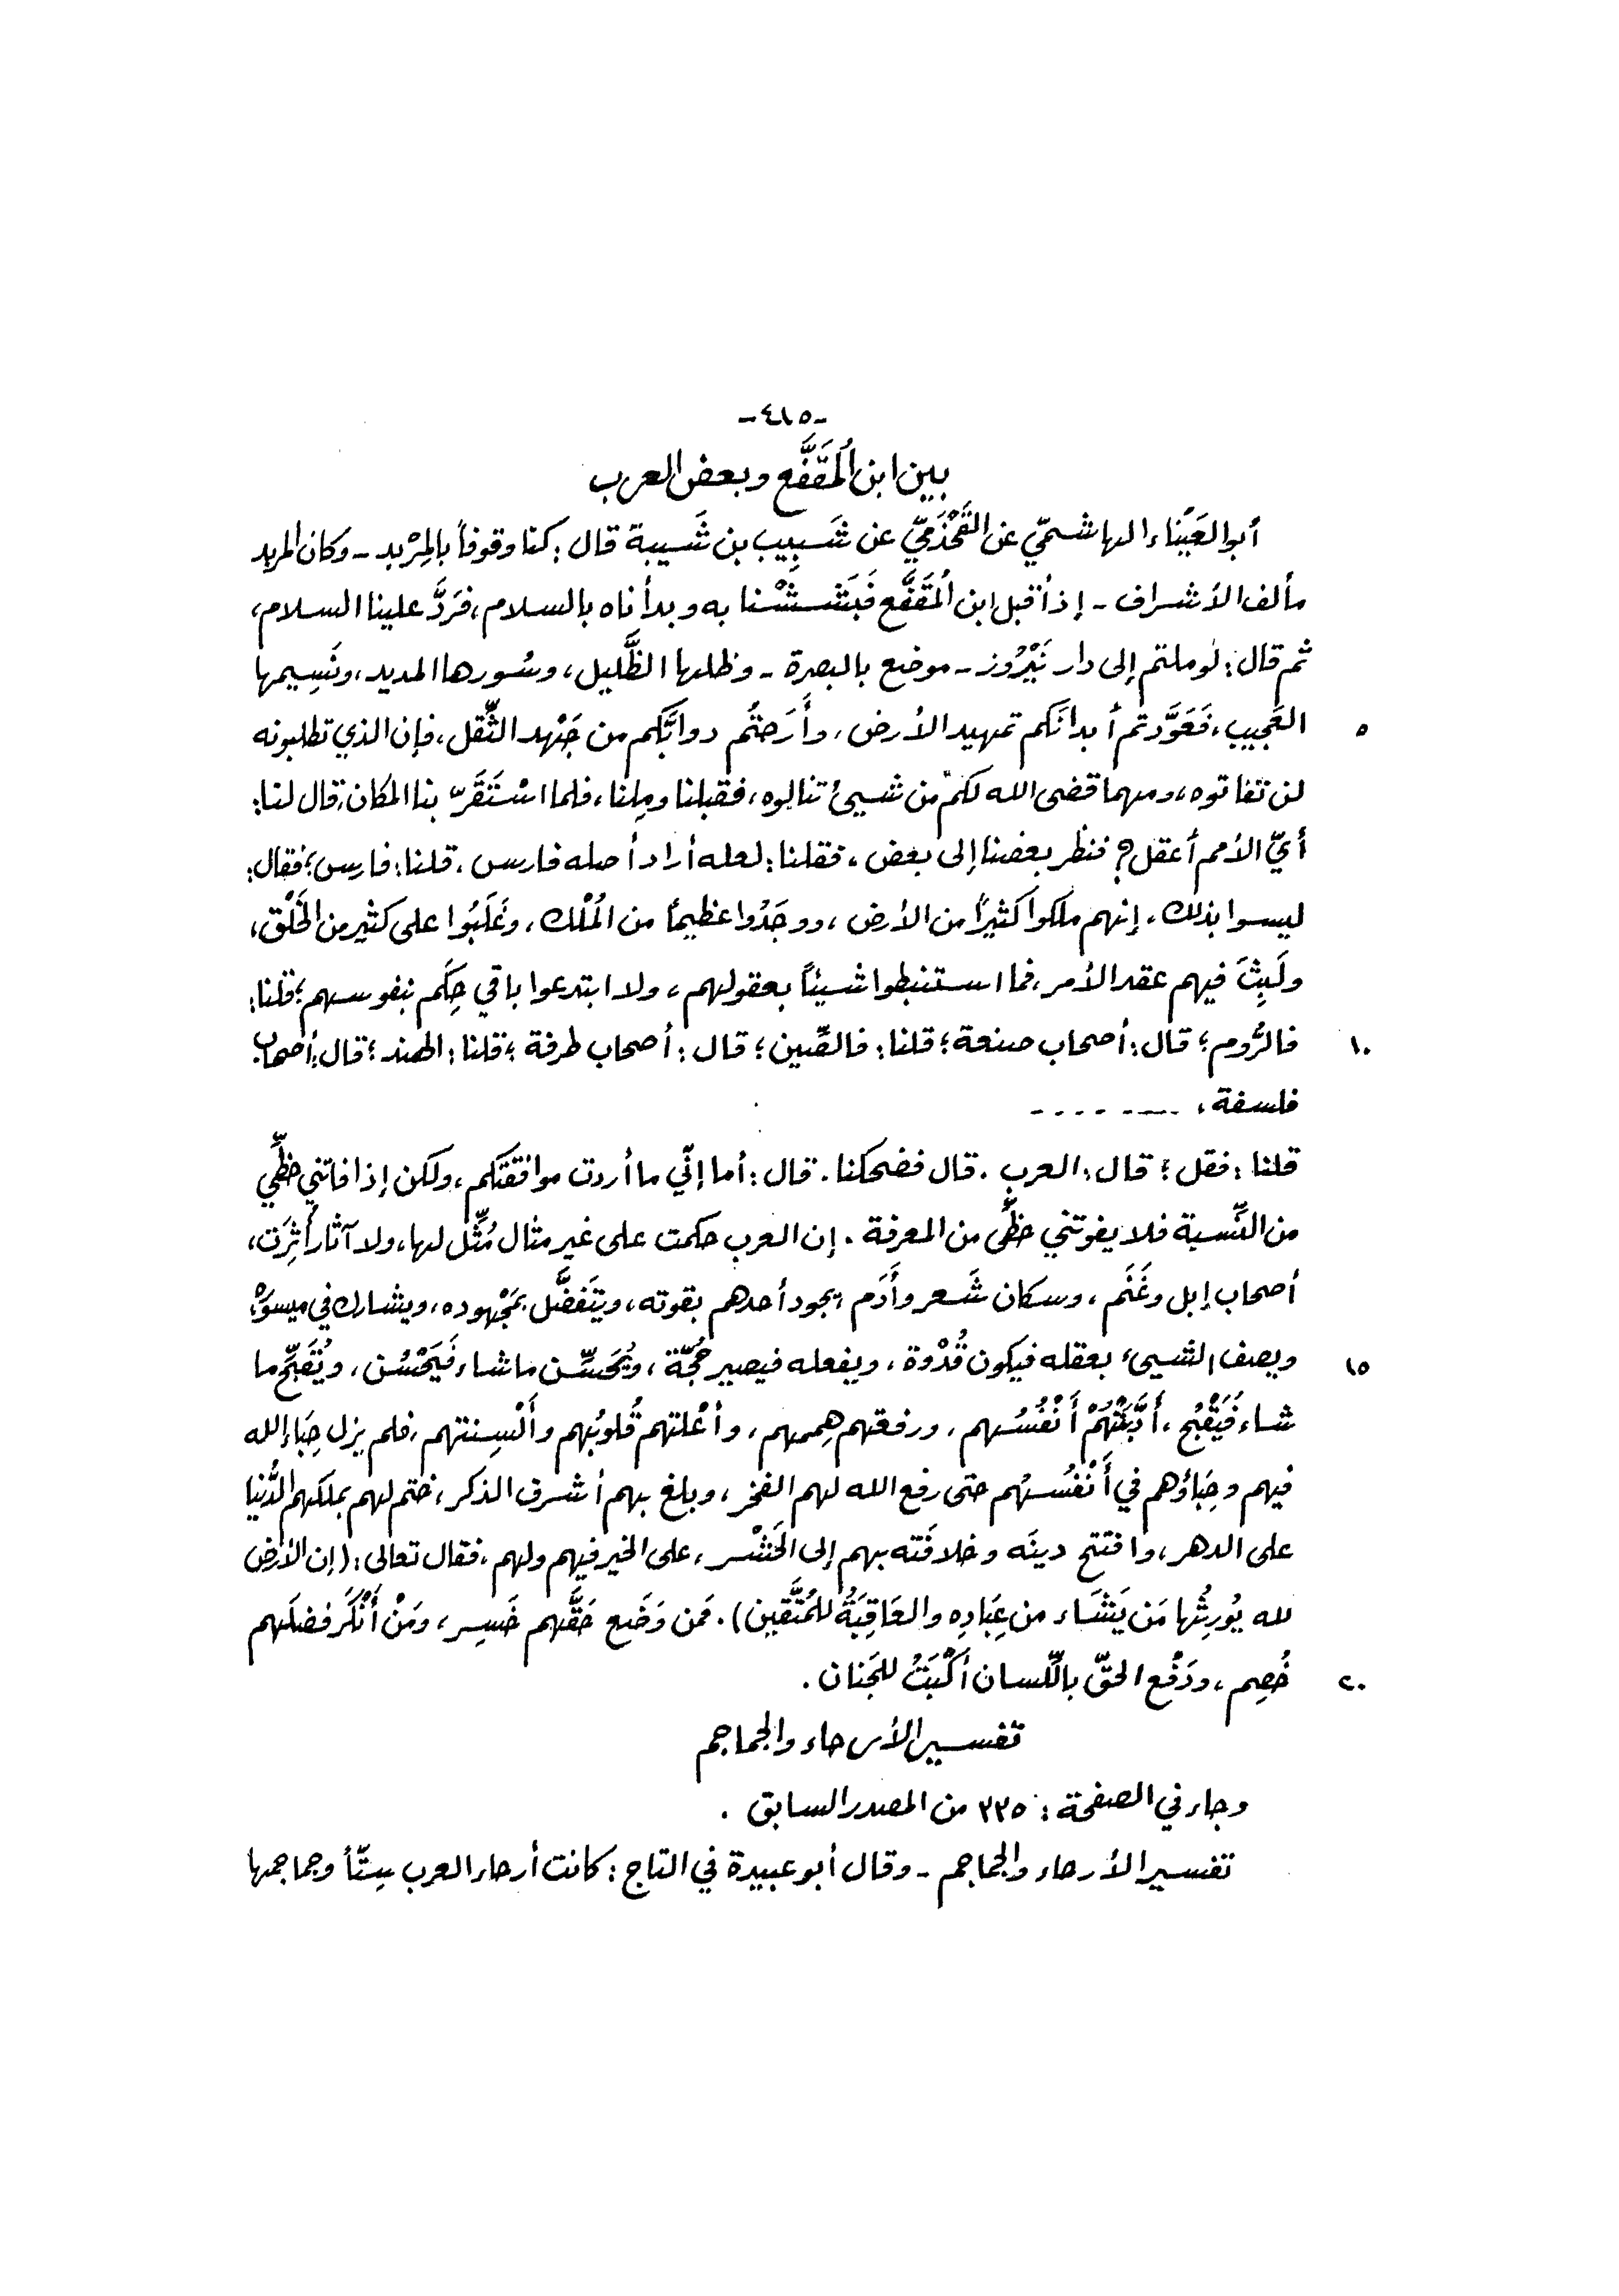 -٤١٥-
بين ابن المُقَفَّع وبعض العرب
أبوالعَيْناء الهاشميّ عن القَحْذَميّ عن شَبِيب بن شَيبة قال : كنا وقوفاً بالمِرْبد - وكان المربد
مألف الأشراف - إذ أقبل ابن المُقَفَّع فَبَشَشْنا به وبدأناه بالسلام ، فرَدَّ علينا السلام ،
ثم قال : لوملتم إلى دار نَيْرُوز - موضع بالبصرة - وظلها الظَّليل ، وسُورها المديد ، ونَسِيمها
٥ العَجيب ، فَعَوَّدتم أبدانَكم تمهيد الأرض ، وأَرَحتُم دوابَّكم من جَهْد الثِّقل ، فإن الذي تطلبونه
لن تفاتوه ، ومهما قضى الله لكم من شيئ تنالوه ، فقبلنا ومِلنا ، فلما اسْتَقَرّ بنا المكان ، قال لنا :
أيّ الأمم أعقل ؟ فنظر بعضنا إلى بعض ، فقلنا : لعله أراد أصله فارس ، قلنا : فارس ؛ فقال :
ليسوا بذلك ، إنهم ملكوا كثيراً من الأرض ، ووجَدُوا عظيماً من المُلْك ، وغَلَبُوا على كثير من الخَلْق ،
ولَبِثَ فيهم عقد الأمر ، فما استنبطوا شيئاً بعقولهم ، ولا ابتدعوا باقي حِكَم بنفوسهم ؛ قلنا :
١٠ فالرُّوم ؛ قال : أصحاب صنعة ؛ قلنا : فالصِّين ؛ قال : أصحاب طرفة ؛ قلنا : الهند ؛ قال : أصحاب
فلسفة ، - - - - - - -
قلنا : فقل ؛ قال : العرب . قال فضحكنا . قال : أما إنّي ما أردت موافَقَتكم ، ولكن إذا فاتني حظِّي
من النِّسبة فلا يفوتني حظِّى من المعرفة . إن العرب حكمت على غير مثال مُثِّل لها ، ولا آثار أُثِرَت ،
أصحاب إبل وغَنَم ، وسكان شَعر وأَدَم ، يجود أحدهم بقوته ، ويتَفضَّل بمَجْهوده ، ويشارك في ميسوره
١٥ ويصف الشيئ بعقله فيكون قُدْوة ، ويفعله فيصير حُجّة ، ويُحَسِّن ما شاء فَيَحْسُن ، ويُقَبِّح ما
شاء فَيَقْبُح ، أَدَّبَتْهُمْ أَنْفُسُهم ، ورفعتهم هِممهم ، وأعْلتهم قُلوبُهم وأَلْسِنتهم ، فلم يزل حِبَاء الله
فيهم وحِبَاؤهم في أَنْفُسهُم حتى رفع الله لهم الفخر ، وبلغ بهم أشرف الذكر ، ختم لهم بملكهم الدُّنيا
على الدهر ، وافتتح دينَه وخلافَته بهم إلى الحَشْر ، على الخير فيهم ولهم ، فقال تعالى : ( إن الأرض
لله يُورِثُها مَن يَشَاء من عِبَادِه والعَاقِبَةُ للمُتَّقين ) . فمن وَضَع حَقَّهم خَسِر ، ومَنْ أَنْكَر فضلَهم
٢٠ خُصِم ، ودَفْع الحقّ باللِّسان أكْبَتُ للجَنان .
تفسير الأرحاء والجماجم
وجاء في الصفحة : ٣٣٥ من المصدر السابق .
تفسير الأرحاء والجماجم - وقال أبوعبيدة في التاج : كانت أرحاء العرب سِتّاً وجماجمها